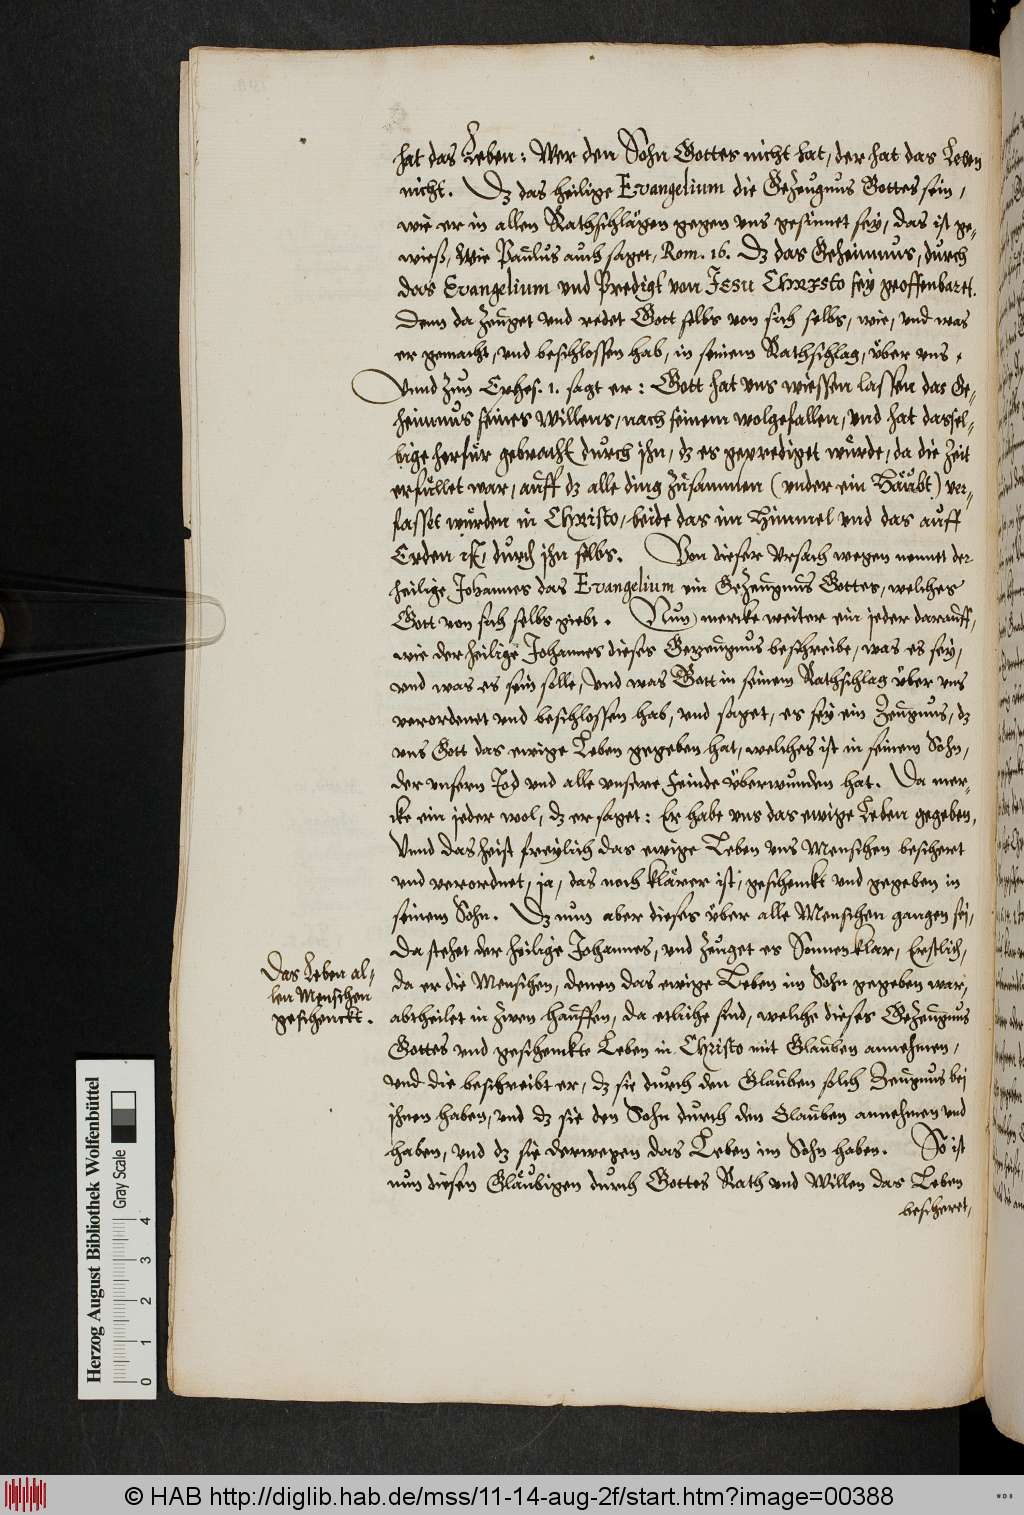 hat das Leben: Wer den Sohn Gottes nicht hat, der hat das Leben
nicht. Dz das heilige Evangelium die Gezeugnus Gottes sein,
wie er in allen Rathschlägen gegen uns gesinnet sey, das ist ge-
wieß, Wie Paulus auch saget, Rom. 16. Dz das Geheimnus, durch
das Evangelium und Predigt von Jesu Christo sey geoffenbaret.
Denn da zeuget und redet Gott selbs von sich selbs, wie, und was
er gemacht, und beschlossen hab, in seinem Rathschlag, über uns.
Unnd zun Ephes. 1. sagt er: Gott hat uns wiessen lassen das Ge-
heimnus seines Willens, nach seinem wolgefallen, und hat dassel-
bige herfür gebracht durch ihn, dz es geprediget würde, da die Zeit
erfüllet war, auff dz alle ding zusammen (under ein Häubt) ver-
fasset würden in Christo, beide das im Himmel und das auff
Erden ist, durch ihn selbs. Von dieser Ursach wegen nennet der
heilige Johannes das Evangelium ein Gezeugnus Gottes, welches
Gott von sich selbs giebt. Nun mercke weiter ein jeder darauff,
wie der heilige Johannes dieses Gezeugnus beschreibe, was es sey,
und was es sein solle, und was Gott in seinem Rathschlag über uns
verordenet und beschlossen hab, und saget, es sey ein Zeugnus, dz
uns Gott das ewige Leben gegeben hat, welches ist in seinem Sohn,
der unsern Tod und alle unsere Feinde überwunden hat. Da mer-
cke ein jeder wol, dz er saget: Er habe uns das ewige Leben gegeben,
Unnd das heist freylich das ewige Leben uns Menschen beschert
und verordnet, ja, das noch klärer ist, geschenckt und gegeben in
seinem Sohn. Dz nun aber dieses über alle Menschen gangen sey,
Da stehet der heilige Johannes, und zeuget es Sonnenklar, Erstlich,
Das Leben al-
len Menschen
geschenckt.
da er die Menschen, denen das ewige Leben im Sohn gegeben war,
abtheilet in zwen hauffen, da etliche sind, welche dieses Gezeugnus
Gottes und geschenckte Leben in Christo mit Glauben annehmen,
und die beschreibt er, dz sie durch den Glauben solch Zeugnus bej
ihnen haben, und dz sie den Sohn durch den Glauben annehmen und
haben, und dz sie derwegen das Leben im Sohn haben. So ist
nun diesen Gläubigen durch Gottes Rath und Willen das Leben
bescheret,
Herzog August Bibliothek Wolfenbüttel
Gray Scale
0 1 2 3 4
© HAB http://diglib.hab.de/mss/11-14-aug-2f/start.htm?image=00388